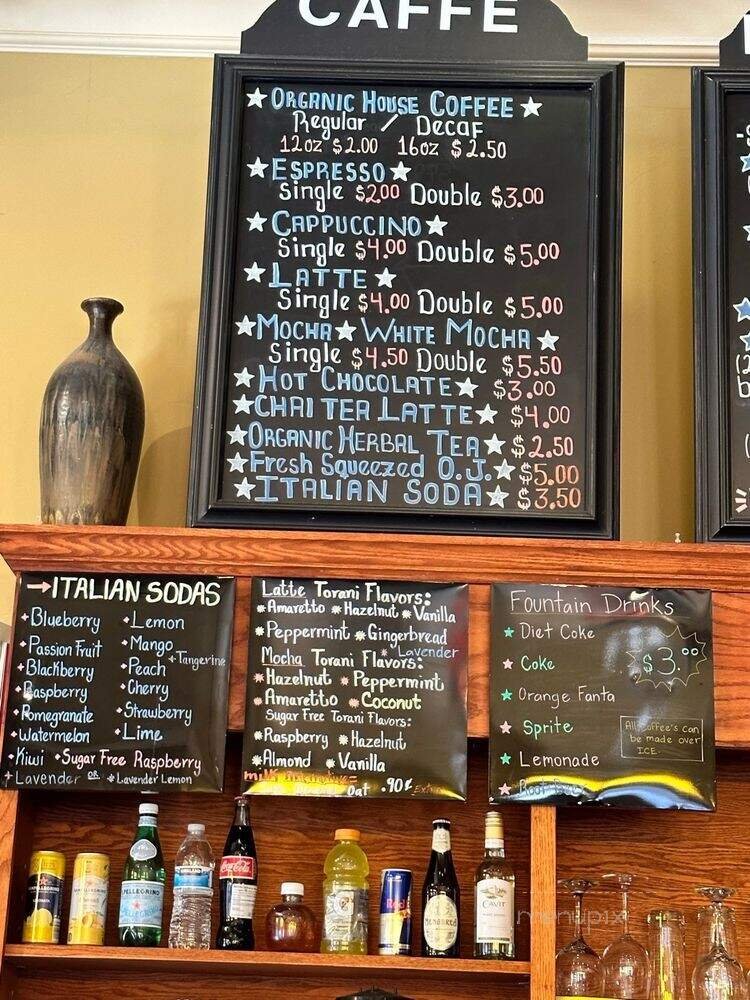 CAFFE
ORGANIC HOUSE COFFEE
Regular / Decaf
12oz $2.00 16oz $2.50
ESPRESSO
Single $2.00 Double $3.00
CAPPUCCINO
Single $4.00 Double $5.00
LATTE
Single $4.00 Double $5.00
MOCHA WHITE MOCHA
Single $4.50 Double $5.50
HOT CHOCOLATE $3.00
CHAI TEA LATTE $4.00
ORGANIC HERBAL TEA $2.50
Fresh Squeezed O.J. $5.00
ITALIAN SODA $3.50
→ITALIAN SODAS
Blueberry
Passion Fruit
Blackberry
Raspberry
Pomegranate
Watermelon
Kiwi
Lemon
Mango
Tangerine
Peach
Cherry
Strawberry
Lime
Sugar Free Raspberry
Lavender OR Lavender Lemon
Latte Torani Flavors:
Amaretto Hazelnut Vanilla
Peppermint Gingerbread
Lavender
Mocha Torani Flavors:
Hazelnut Peppermint
Amaretto Coconut
Sugar Free Torani Flavors:
Raspberry Hazelnut
Almond Vanilla
milk
Oat .90¢ Extra
Fountain Drinks
Diet Coke
Coke
Orange Fanta
Sprite
Lemonade
Root Beer
$3.00
All Coffee's can
be made over
ICE.
S.PELLEGRINO
Coca-Cola
Red
CAVIT
menupix